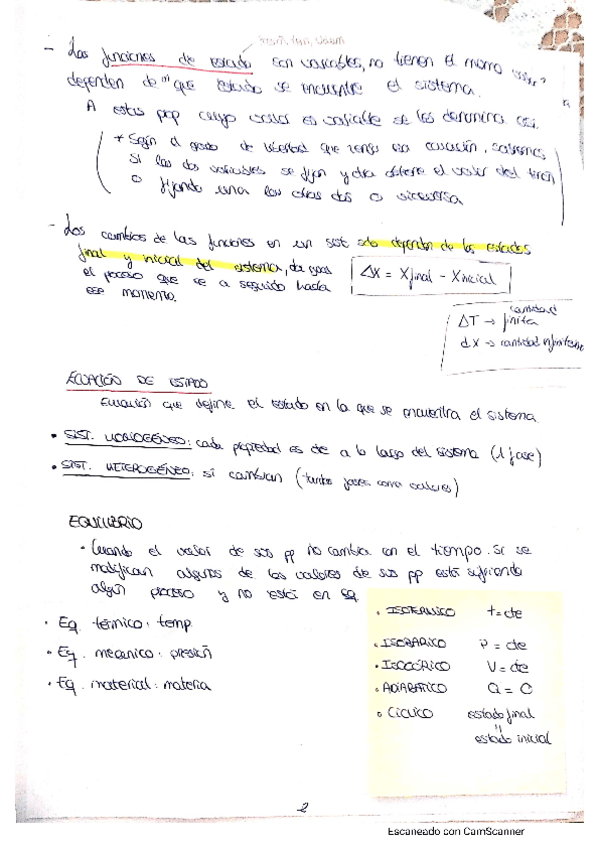 - Las funciones de estado son variables, no tienen el mismo
dependen de en que estado se encuentre el sistema.
A estas pop cuyo valor es variable se les denomina así.
* Según el grado de libertad que tenga esa ecuación, sabremos
si las dos variables se fijan y otra obtiene el valor del
o fijando una las otras dos o viceversa
- Los cambios de las funciones en un sist solo dependen de los estados
final y inicial del sistema, da igual
el proceso que se a seguido hasta
ese momento.
ΔX = Xfinal - Xinicial
ΔT → cantidad finita
dX → cantidad infinitesima
ECUACIÓN DE ESTADO
Ecuación que define el estado en la que se encuentra el sistema
• SIST. HOMOGÉNEO: cada propiedad es cte a lo largo del sistema (1 fase)
• SIST. HETEROGÉNEO: si cambian (tanto fases como valores)
EQUILIBRIO
• Cuando el valor de sus pp no cambia con el tiempo. Si se
modifican algunos de los valores de sus pp está sufriendo
algún proceso y no está en Eq
• Eq. térmico: temp.
• Eq. mecanico: presión
• Eq. material: materia
• ISOTERMICO t = cte
• ISOBARICO P = cte
• ISOCÓRICO V = cte
• ADIABATICO Q = 0
• Cíclico estado final
=
estado inicial
2
Escaneado con CamScanner